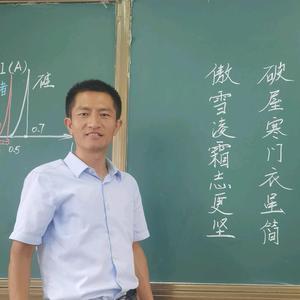 I(A)
硅
0.7
0.5
破屋寒门衣虽简
傲雪凌霜志更坚